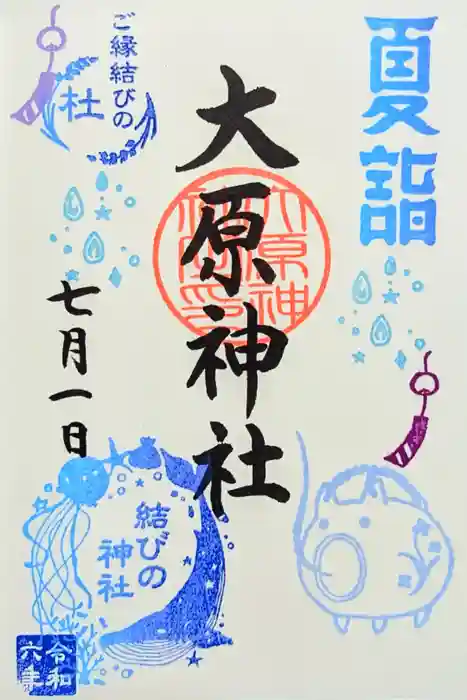 夏詣
大原神社
ご縁結びの
杜
七月一日
結びの
神社
令和
六年